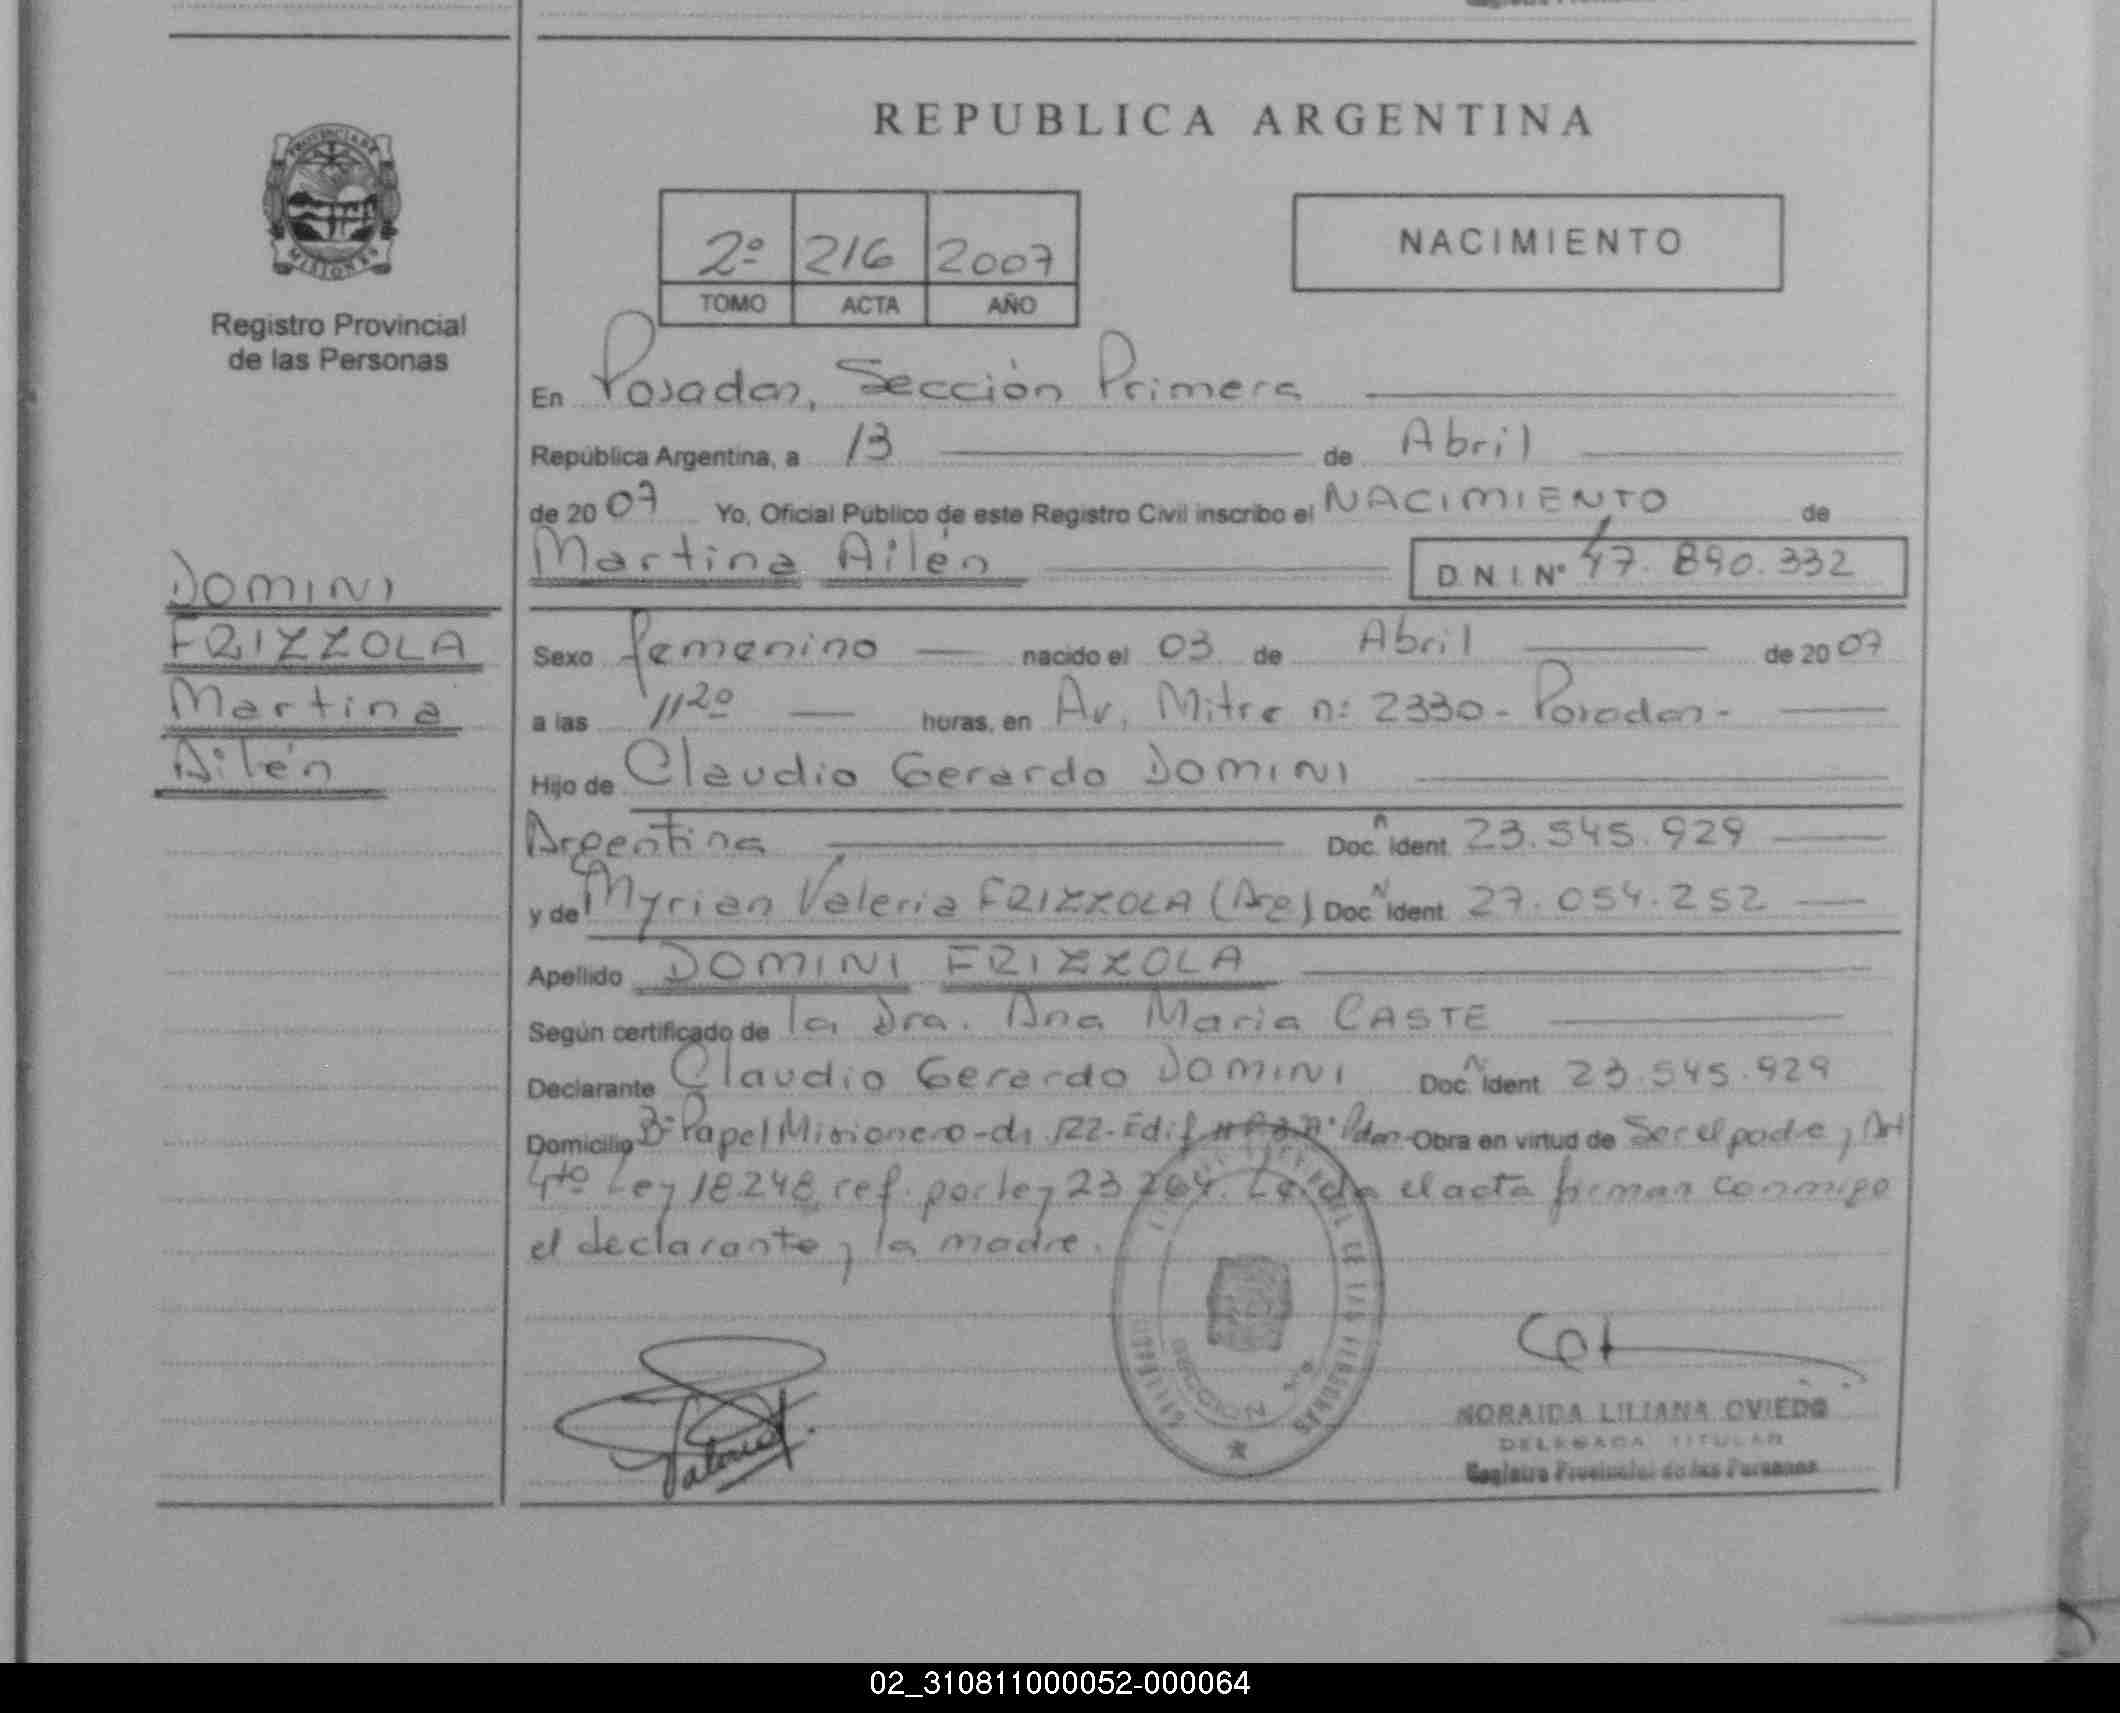 REPUBLICA ARGENTINA
PROVINCIA DE
MISIONES
Registro Provincial
de las Personas
2º 216 2007
TOMO ACTA AÑO
NACIMIENTO
En Posadas, Sección Primera
República Argentina, a 13 de Abril
de 2007 Yo, Oficial Público de este Registro Civil inscribo el NACIMIENTO de
Martina Ailén D.N.I. Nº 47.890.332
DOMINI
FRIZZOLA
Martina
Ailén
Sexo femenino nacido el 03 de Abril de 2007
a las 11 20 horas, en Av. Mitre nº 2330 - Posadas -
Hijo de Claudio Gerardo DOMINI
Argentina Doc. Ident. 23.545.929
y de Myrian Valeria FRIZZOLA (Arg) Doc. Ident. 27.054.252
Apellido DOMINI FRIZZOLA
Según certificado de la Dra. Ana Maria CASTE
Declarante Claudio Gerardo DOMINI Doc. Ident. 23.545.929
Domicilio Bº Papel Misionero - Edif Obra en virtud de Ser el padre y Art
4to Ley 18.248 ref. por ley 23 264. Leida el acta firman conmigo
el declarante y la madre.
SECCION
NORAIDA LILIANA OVIEDO
DELEGADA TITULAR
Registro Provincial de las Personas
02_310811000052-000064